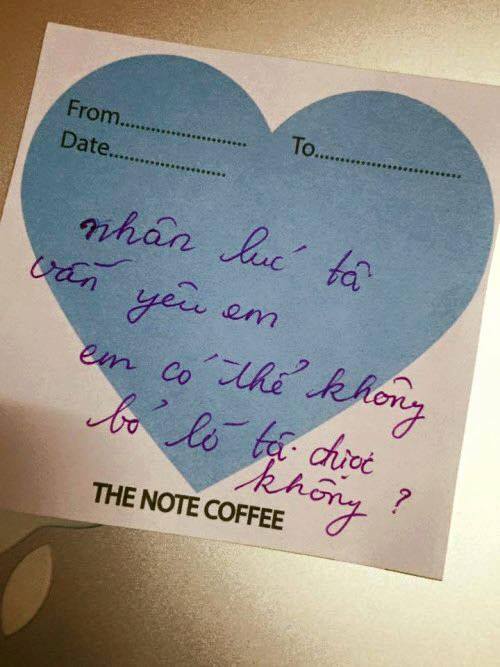 From.......................... To..............................
Date........................
nhân lúc tâ
vẫn yêu em
em có thể không
bỏ lỡ tâ. được
không ?
THE NOTE COFFEE